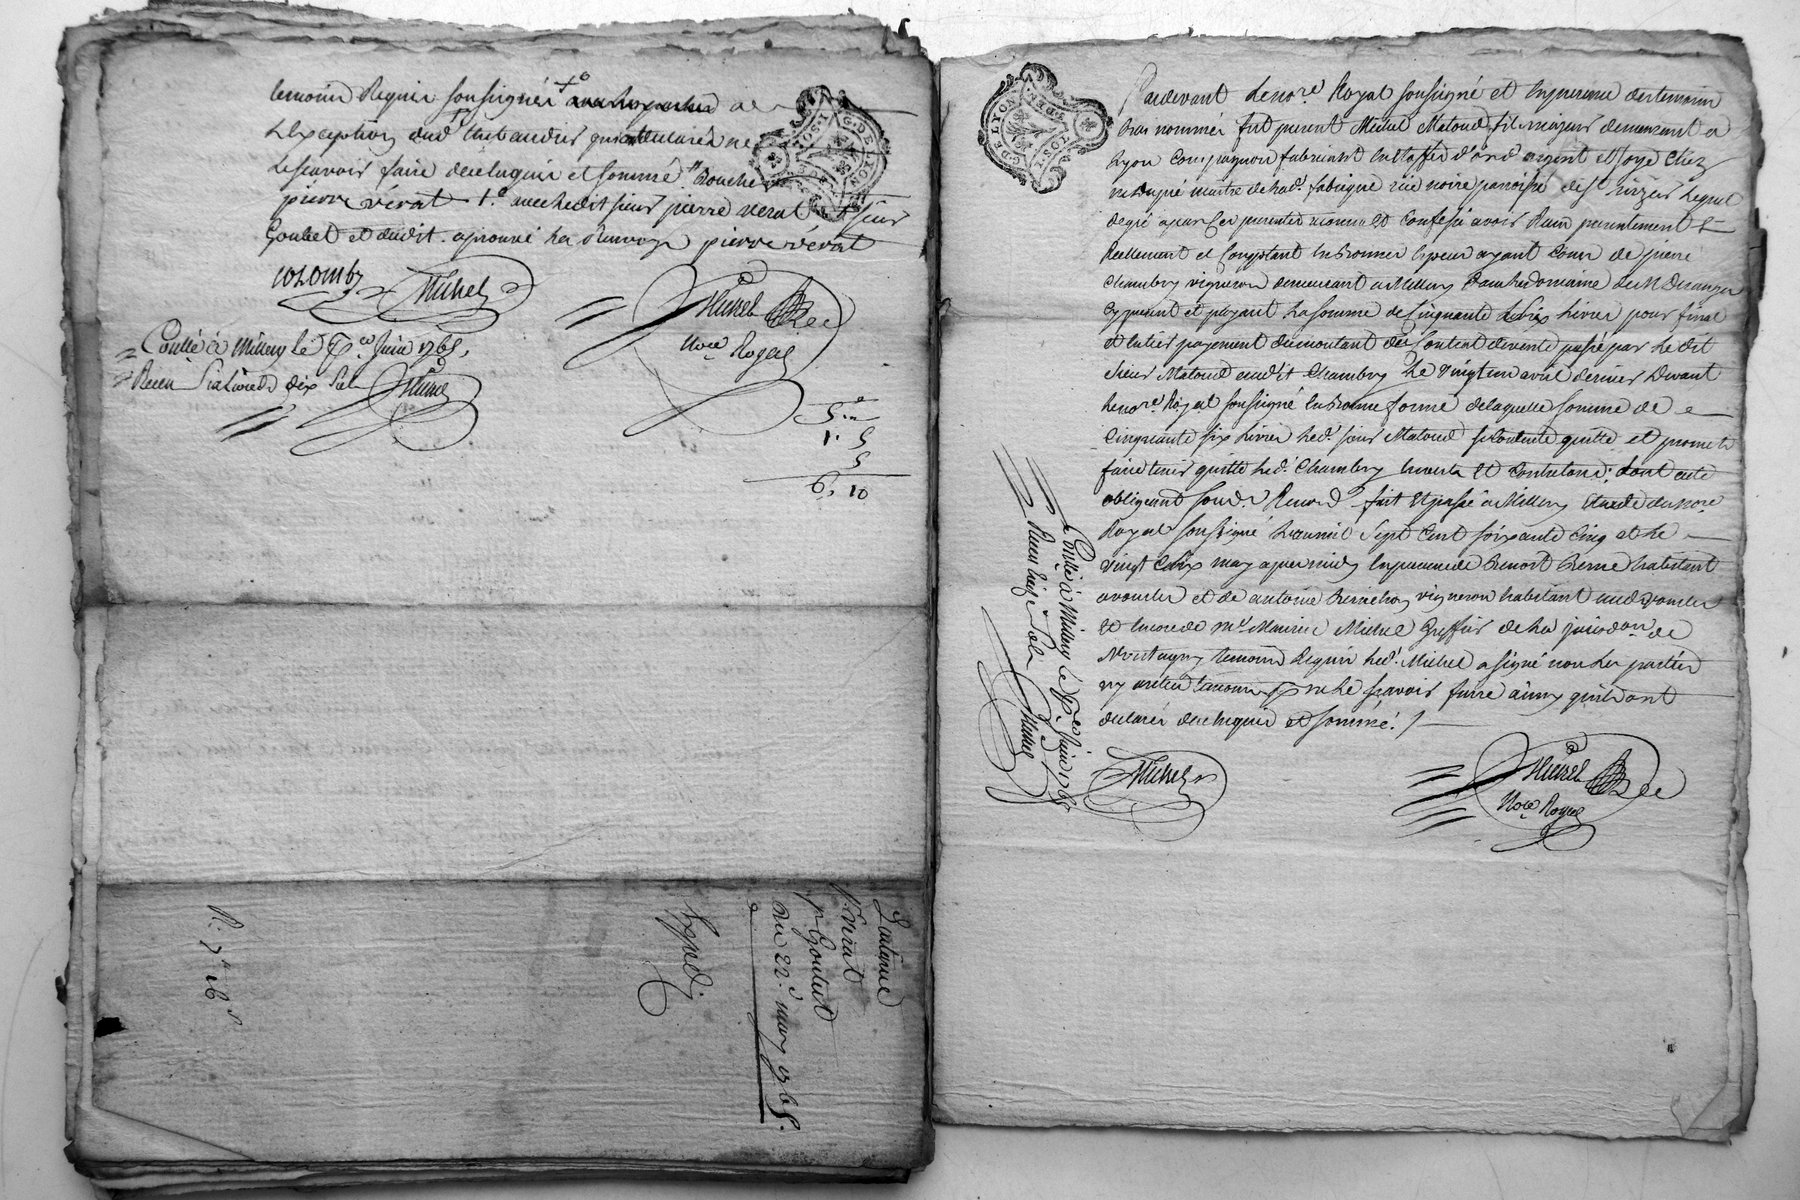 temoins Requis soussignés avec les parties a
L'exception dud. Thibaudier qui a declaré ne
Le scavoir faire de ce Enquis et sommé
pierre vérat 1.º avec Le dit sieur pierre verat
Goulet et dudit. aprouvé Les Renvoys pierre verat
colomby
Michel
Michel
No.re Royal
Con.llé à Millery Le p.er Juin 1765.
Receu six Livres dix sols
Michel
5.
1. 5
5
6. 10
Quittance
Verat
p. Goulet
du 22.e may 1765.
Expedi.
G. DE LYON
Pardevant Le no.re Royal soussigné et En presence des temoins
bas nommés fut present Michel Matoud fils majeur demeurant a
Lyon Compagnon fabriquant En Etoffes d'or d'argent et soye chez
maitre de lad.e fabrique rüe noire paroisse de S.t nizier Lequel
de gré a par Ces presentes reconnu Et Confessé avoir Receu presentement
Reellement et Comptant En Bonnes Especes ayant Cours de pierre
Chambry vigneron demeurant a Millery dans Le domaine de M.
Cy present et payant La somme de Cinquante Six Livres pour final
et Entier payement du montant du Contrat de vente passé par Le dit
sieur Matoud audit Chambry Le vingt un avril dernier Devant
Le no.re Royal soussigné En Bonne forme de laquelle somme de
Cinquante six Livres led.t sieur Matoud se Contente quitte et promet
faire tenir quitte led.t Chambry Envers Et Contre tous; dont acte
obligeant soum.s Renon.t fait Et passé a Millery Etude du no.re
Royal soussigné L'an mil Sept Cent soixante Cinq et Le
vingt deux may apres midy En presence de Benoit
a vourles et de antoine vigneron habitant aud. vourles
Et Encore de M.e Maurice Michel Greffier de La jurisd.on de
Montagny temoins Requis led.t Michel a signé non Les parties
ny autres temoins p.r ne Le scavoir faire ainsy qu'ils ont
declaré de ce Enquis et sommé. /
Michel
Michel
No.re Royal
Con.llé à Millery Le p.er Juin 1765
Receu treize sols
Michel